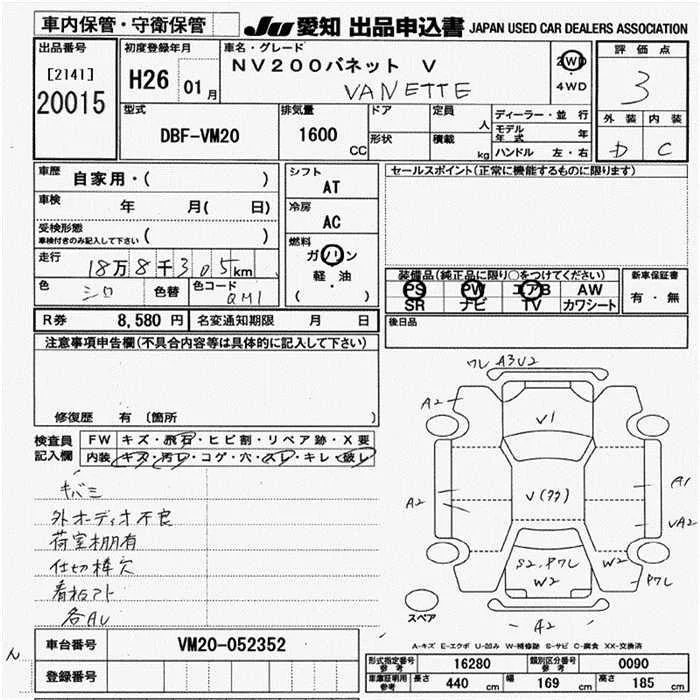 車内保管・守衛保管
JU 愛知 出品申込書 JAPAN USED CAR DEALERS ASSOCIATION
出品番号
[2141]
20015
初度登録年月
H26 01月
車名・グレード
NV200バネット V
VANETTE
2WD
4WD
評価点
3
外装 内装
D C
型式
DBF-VM20
排気量
1600
CC
ドア
形状
定員
人
積載
kg
ディーラー・並行
モデル年式 年
ハンドル 左・右
車歴
自家用・( )
車検
年 月( 日)
受検形態
車検付きのみ記入して下さい ( )
走行
18万8千305km
色
シロ
色替
色コード
QM1
シフト
AT
冷房
AC
燃料
ガソリン
軽・油
( )
セールスポイント(正常に機能するものに限ります)
装備品(純正品に限り○をつけてください)
PS PW エアB AW
SR ナビ TV カワシート
新車保証書
有・無
後日品
R券 8,580 円 名変通知期限 月 日
注意事項申告欄(不具合内容等は具体的に記入して下さい)
修復歴 有 (箇所 )
検査員記入欄
FW キズ・飛石・ヒビ割・リペア跡・X要
内装 キズ・汚レ・コゲ・穴・スレ・キレ・破レ
キバミ
外オーディオ不良
荷室棚有
仕切棒欠
看板アト
各AU
ワレ A3U2
A2
V1
A2
V(クク)
A1
UA2
S2,ワレ
W2
W2
ワレ
A2
スペア
A-キズ E-エクボ U-凹み W-補修跡 S-サビ C-腐食 XX-交換済
車台番号 VM20-052352
登録番号
型式指定番号 参考 16280 類別区分番号 参考 0090
車庫証明用参考 長さ 440 cm 幅 169 cm 高さ 185 cm